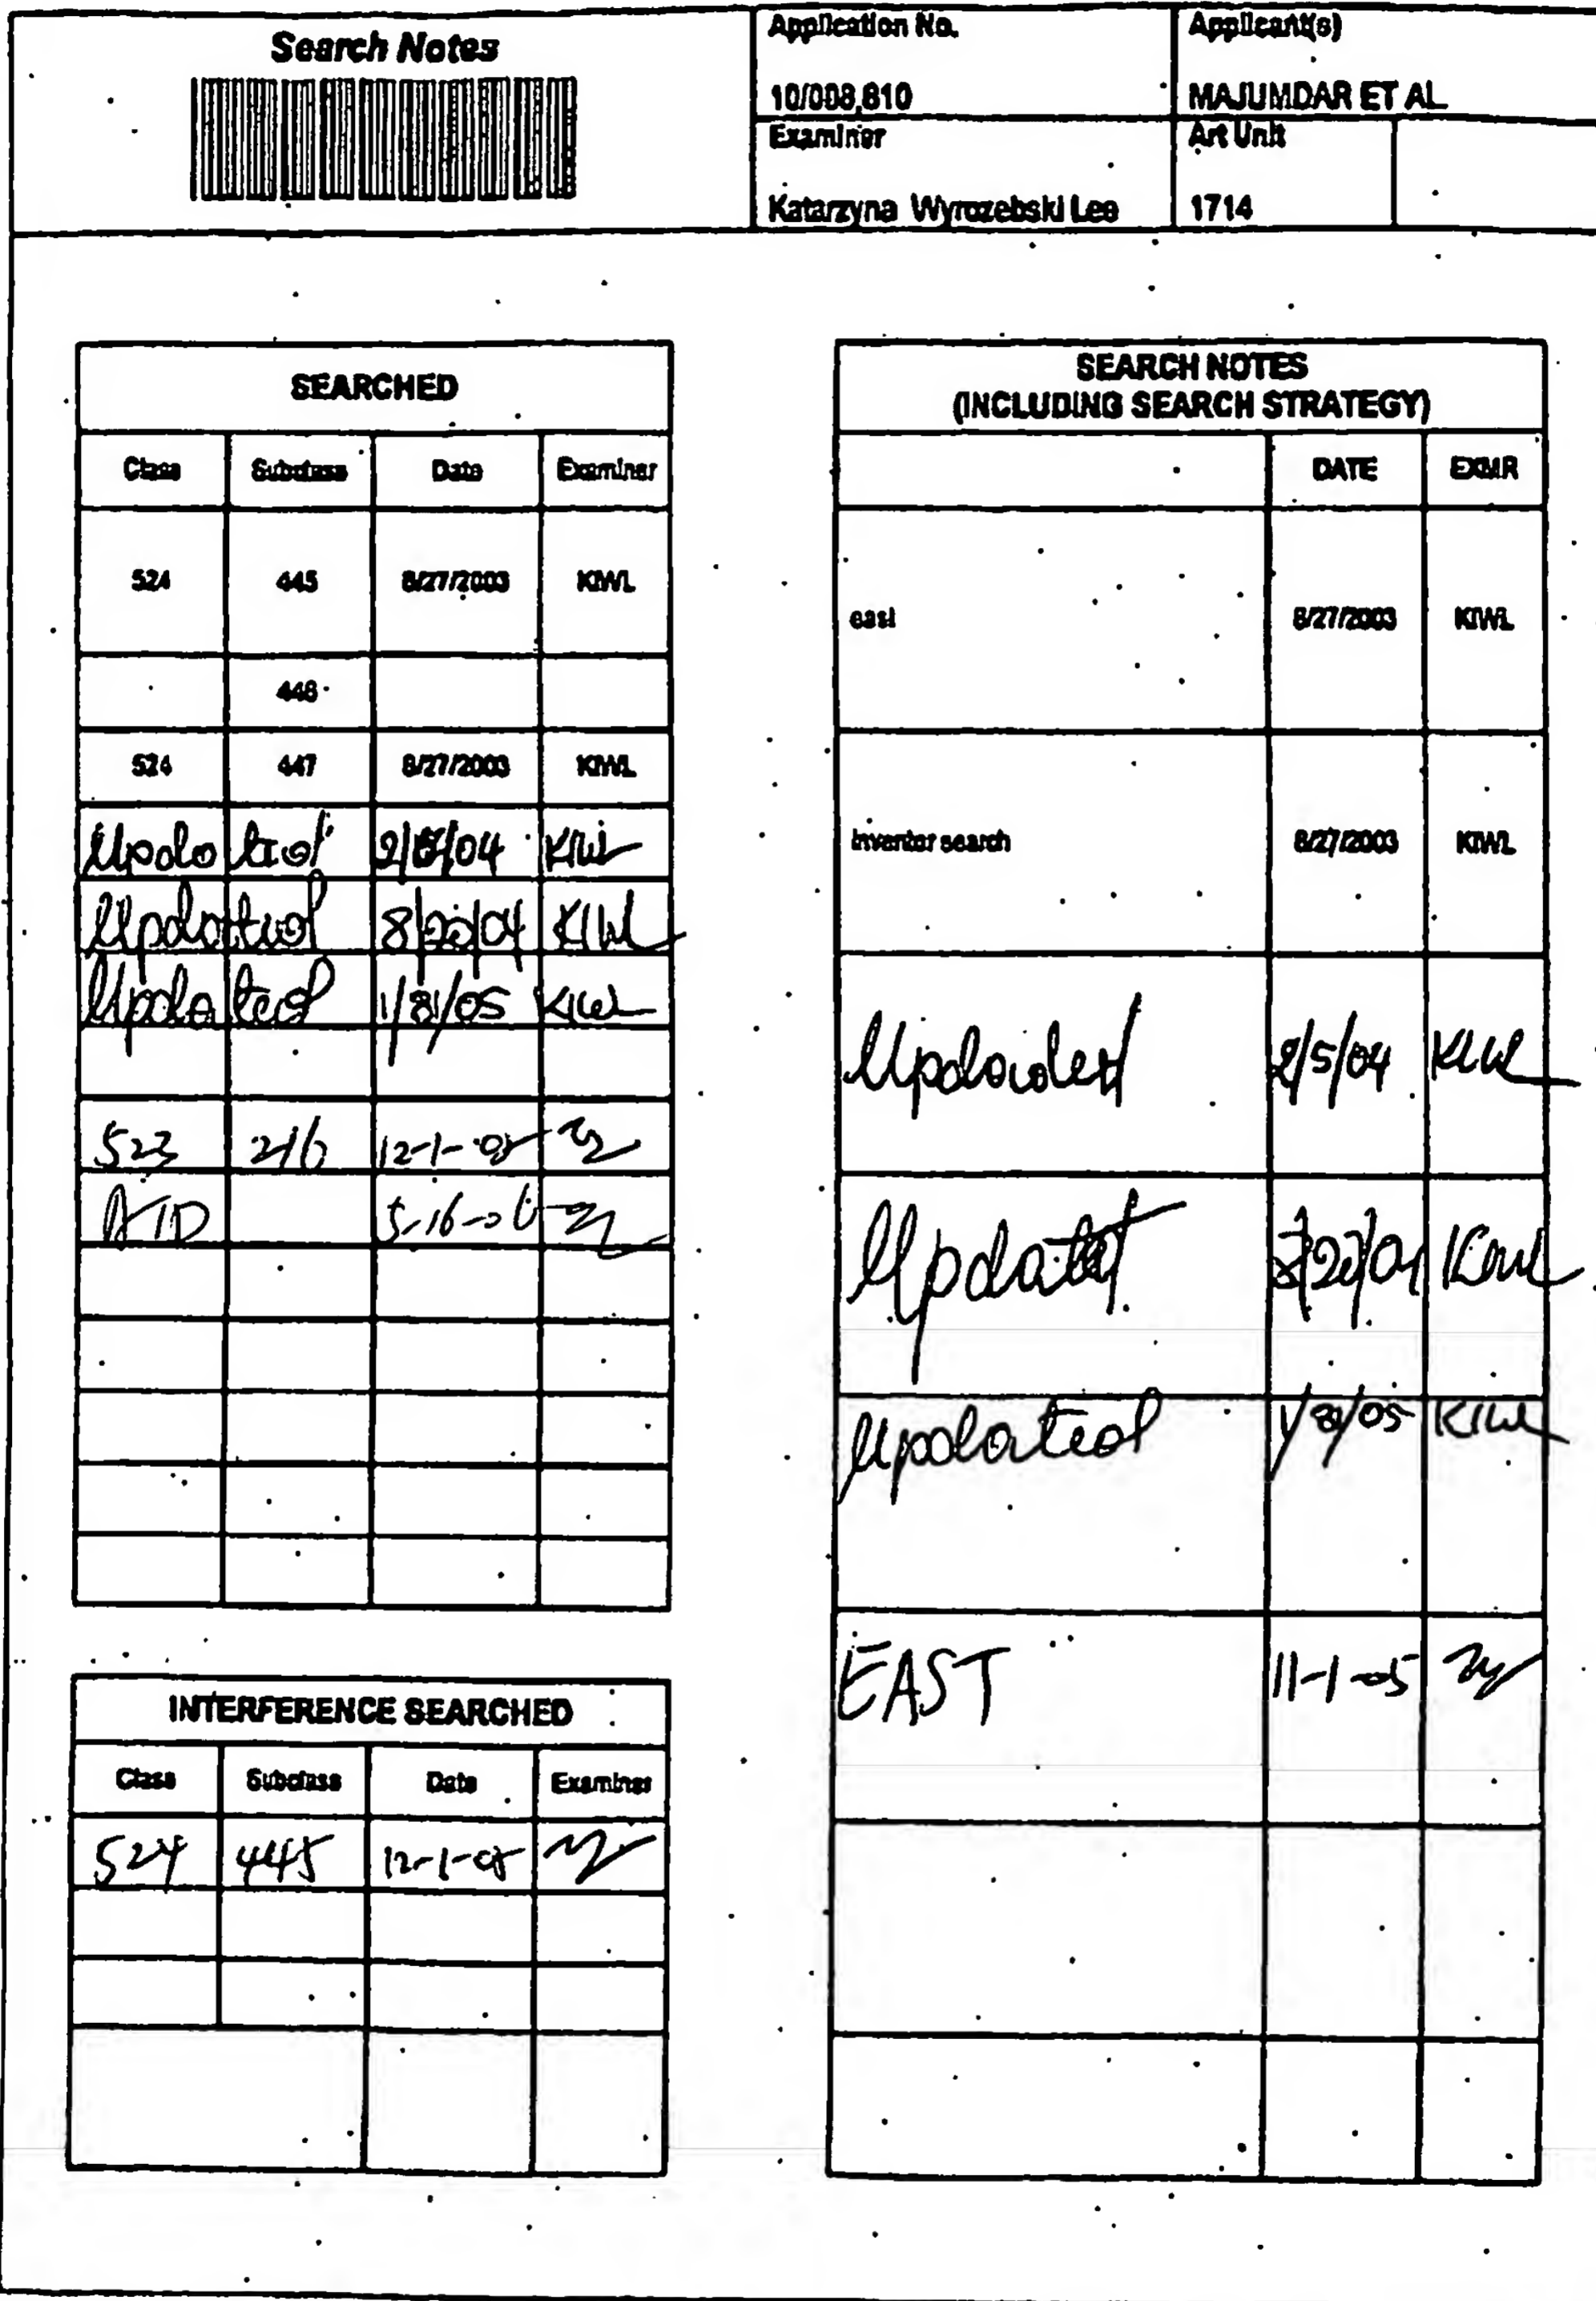 Search Notes
Application No.
10/008,810
Applicant(s)
MAJUMDAR ET AL
Examiner
Katarzyna Wyrozebski Lee
Art Unit
1714
SEARCHED
Class Subclass Date Examiner
524 445 8/27/2003 KIWL
446
524 447 8/27/2003 KIWL
Updated 2/5/04 KIWL
Updated KIWL
Updated 1/31/05 KIWL
523 216 12-1-05
5-16-06
INTERFERENCE SEARCHED
Class Subclass Date Examiner
524 445 12-1-05
SEARCH NOTES
(INCLUDING SEARCH STRATEGY)
DATE EXMR
east 8/27/2003 KIWL
inventor search 8/27/2003 KIWL
Updated 2/5/04 KIWL
Updated KIWL
Updated 1/31/05 KIWL
EAST 11-1-05